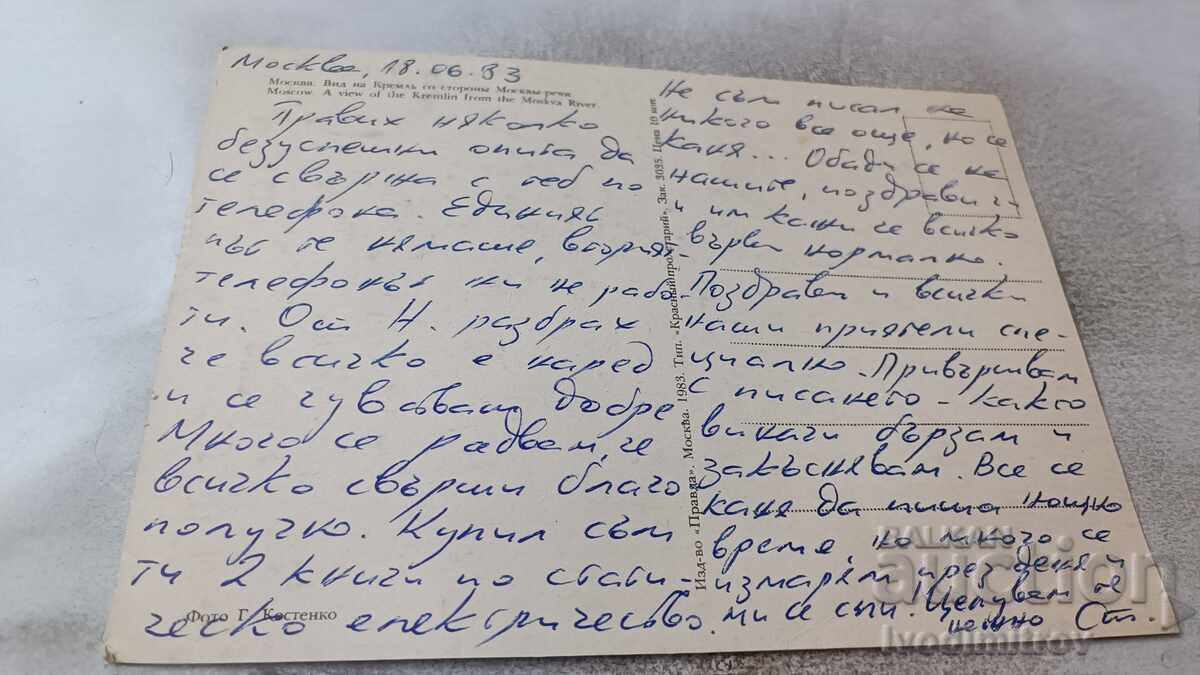 Москва, 18.06.83
Москва. Вид на Кремль со стороны Москвы-реки
Moscow. A view of the Kremlin from the Moskva River.
Правих няколко
безуспешни опита да
се свържа с теб по
телефона. Единият
път те нямаше, вторият,
телефонът ни не рабо-
ти. От Н. разбрах
че всичко е наред
и се чувстваш добре
Много се радвам, че
всичко свърши благо
получно. Купил съм
ти 2 книги по стати-
ческо електричество.
Фото Г. Костенко
Изд-во «Правда». Москва. 1983. Тип. «Красный пролетарий». Зак. 3035. Цена 10 шт
Не съм писал на
никого все още, но се
каня... Обади се на
нашите, поздрави ги
и им кажи че всичко
върви нормално.
Поздрави и всички
наши приятели спе-
циално. Привършвам
с писането - както
винаги бързам и
закъснявам. Все се
каня да пиша нощно
време, но много се
изморям през деня и
ми се спи. Целувам те
нежно Ст.
БАЛКАН
auction
ivodimitrov